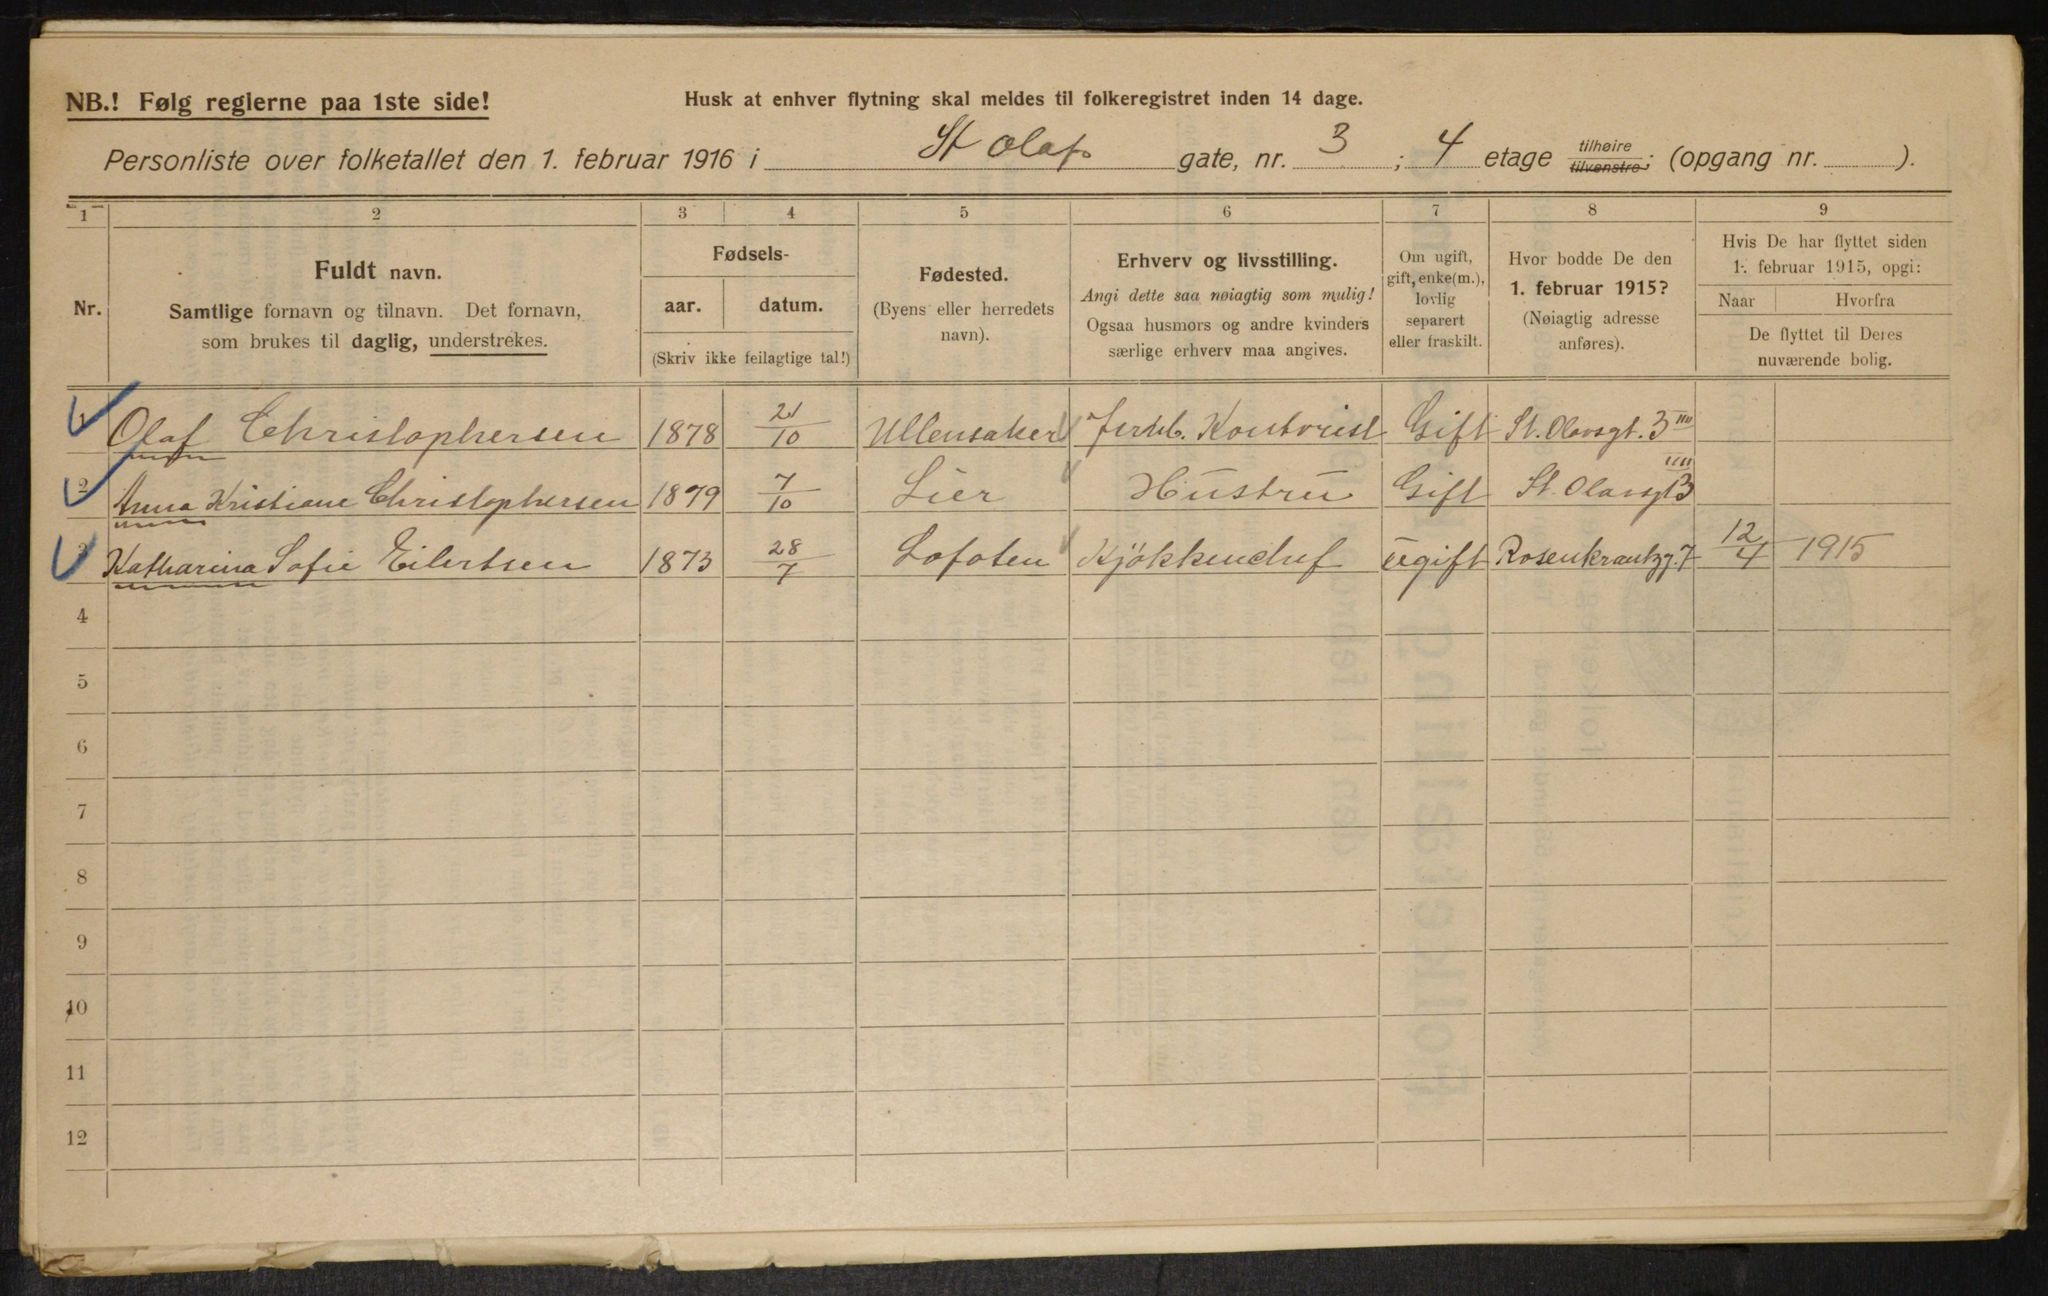 NB.! Følg reglerne paa 1ste side!
Husk at enhver flytning skal meldes til folkeregistret inden 14 dage.
Personliste over folketallet den 1. februar 1916 i St Olafs gate, nr. 3 ; 4 etage tilhøire tilvenstre; (opgang nr. ).
1 2 3 4 5 6 7 8 9
Nr.
Fuldt navn.
Samtlige fornavn og tilnavn. Det fornavn,
som brukes til daglig, understrekes.
Fødsels-
aar. datum.
(Skriv ikke feilagtige tal!)
Fødested.
(Byens eller herredets
navn).
Erhverv og livsstilling.
Angi dette saa nøiagtig som mulig!
Ogsaa husmors og andre kvinders
særlige erhverv maa angives.
Om ugift,
gift, enke(m.),
lovlig
separert
eller fraskilt.
Hvor bodde De den
1. februar 1915?
(Nøiagtig adresse
anføres).
Hvis De har flyttet siden
1. februar 1915, opgi:
Naar Hvorfra
De flyttet til Deres
nuværende bolig.
1 Olaf Christophersen 1878 21/10 Ullensaker Jernb. Kontorist Gift St. Olavsgt. 3 IIII
2 Anna Kristiane Christophersen 1879 7/10 Lier Hustru Gift St. Olavsgt 3 IIII
3 Katharina Sofie Eilertsen 1873 28/7 Lofoten Kjøkkenchef ugift Rosenkrantzg. 7 12/4 1915
4
5
6
7
8
9
10
11
12